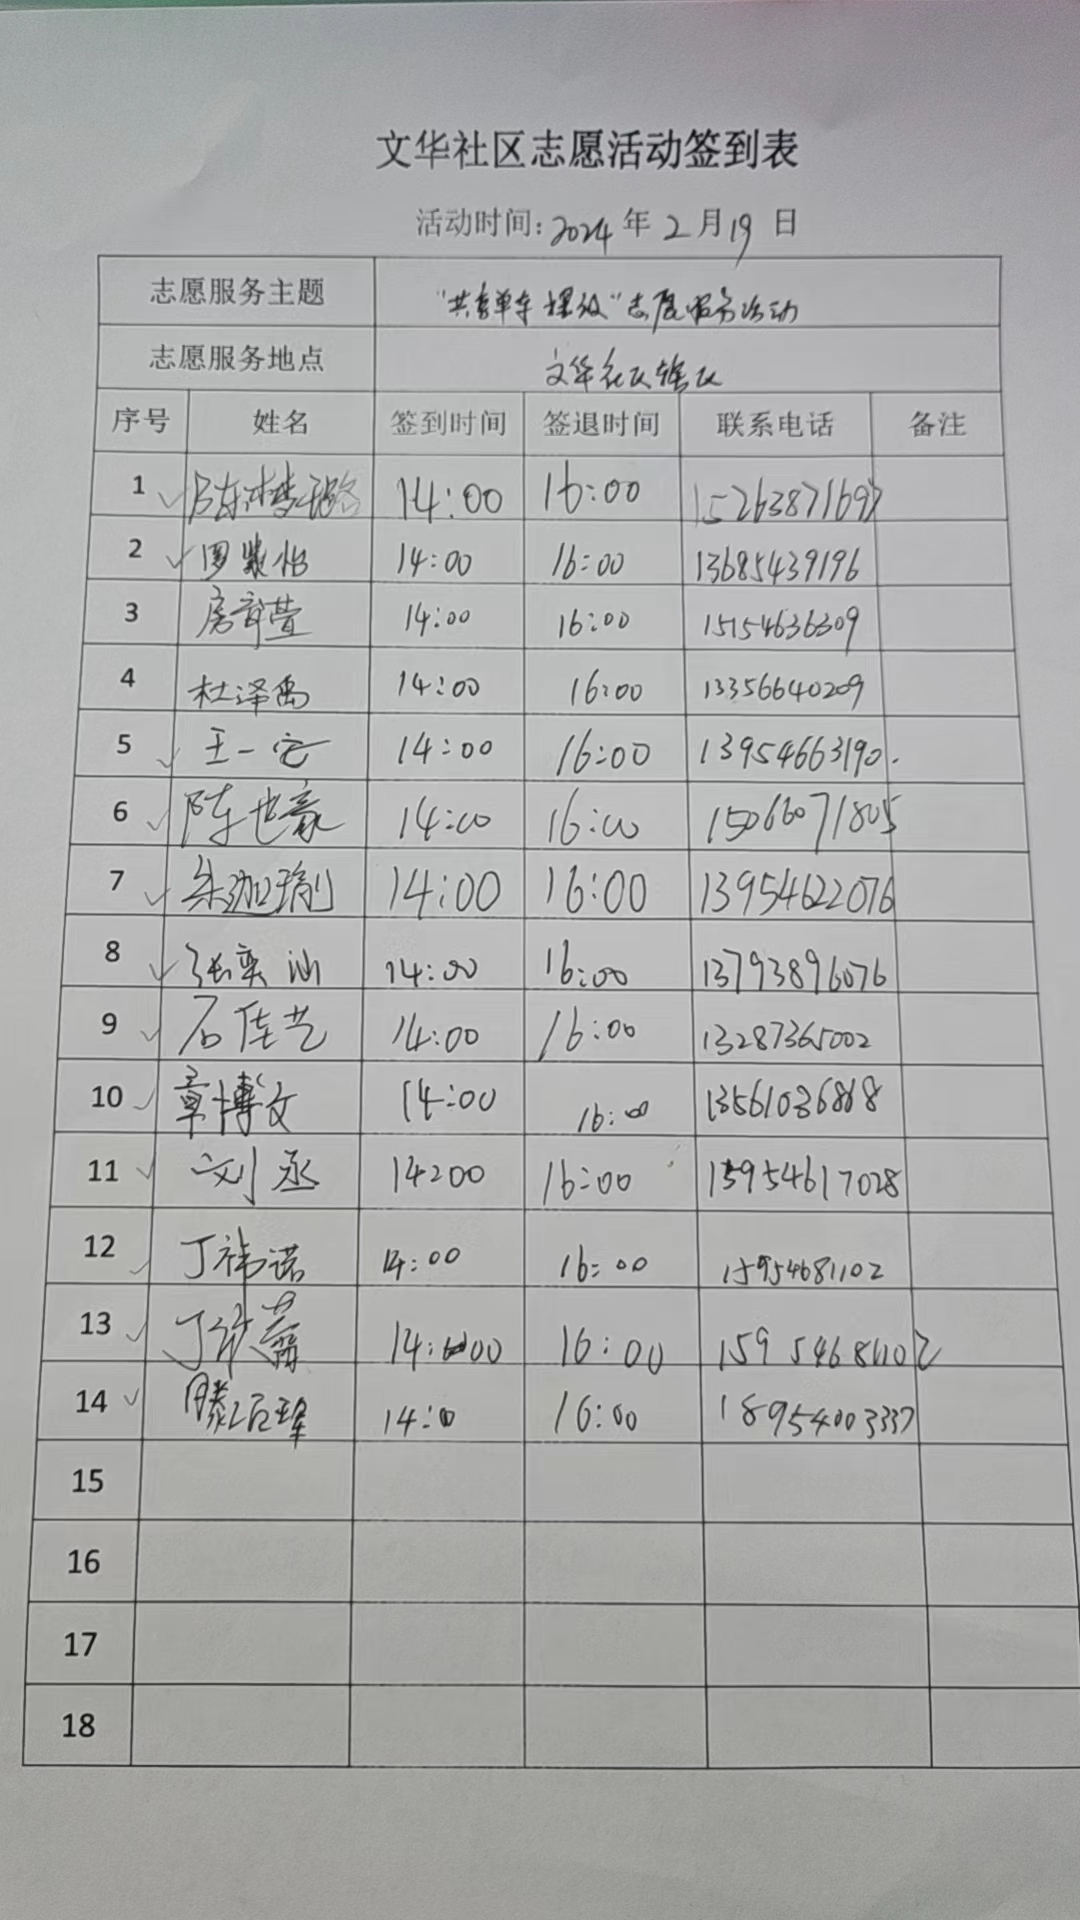 文华社区志愿活动签到表
活动时间: 2024 年 2 月 19 日
志愿服务主题 "共享单车摆放"志愿服务活动
志愿服务地点 文华社区辖区
序号 姓名 签到时间 签退时间 联系电话 备注
1 ✓ 陈梦璐 14:00 16:00 15263871697
2 ✓ 周紫怡 14:00 16:00 13685439196
3 房 萱 14:00 16:00 15154636309
4 杜泽禹 14:00 16:00 13356640209
5 ✓ 王一 14:00 16:00 13954663190.
6 ✓ 陈也豪 14:00 16:00 15066071805
7 ✓ 朱迦瑜 14:00 16:00 13954622076
8 ✓ 张奕汕 14:00 16:00 13793896076
9 ✓ 石佳艺 14:00 16:00 13287365002
10 ✓ 章博文 14:00 16:00 13561036868
11 ✓ 刘丞 14:00 16:00 15954617028
12 ✓ 丁祎诺 14:00 16:00 15954681102
13 ✓ 丁 14:00 16:00 15954681102
14 ✓ 滕 14:00 16:00 18954003337
15
16
17
18